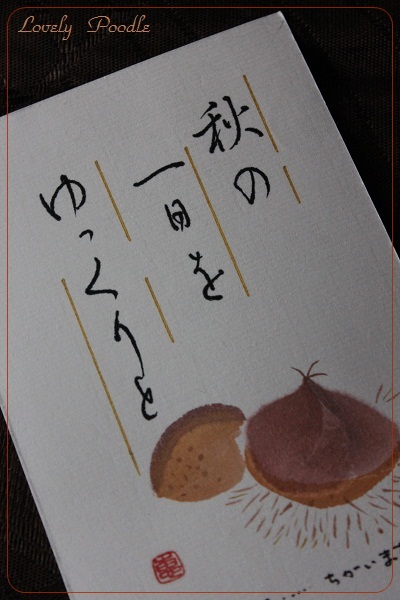 Lovely Poodle
秋の
一日を
ゆっくりと
ちかいま